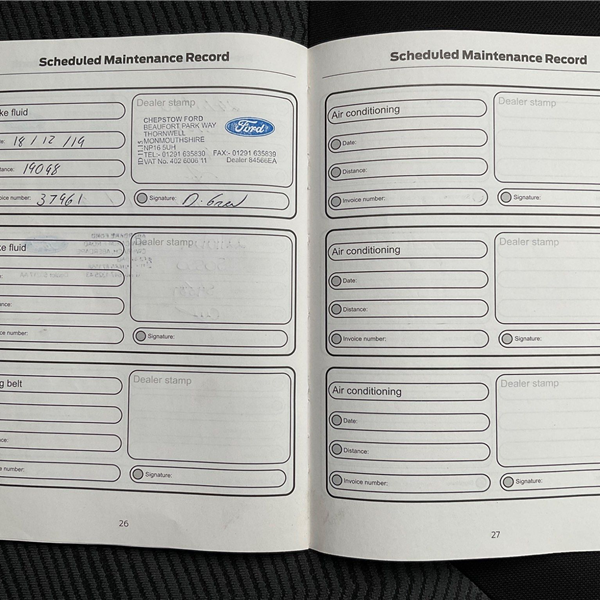 Scheduled Maintenance Record
ke fluid
Dealer stamp
CHEPSTOW FORD
BEAUFORT PARK WAY
THORNWELL
MONMOUTHSHIRE
NP16 5UH
TEL:- 01291 635830 FAX:- 01291 635839
VAT No. 402 6006 11 Dealer 84566EA
Ford
18 / 12 / 19
tance: 19098
oice number: 37961
Signature:
ke fluid
Dealer stamp
ance:
ice number:
Signature:
g belt
Dealer stamp
ce:
number:
Signature:
26
Scheduled Maintenance Record
Air conditioning
Dealer stamp
Date:
Distance:
Invoice number:
Signature:
Air conditioning
Dealer stamp
Date:
Distance:
Invoice number:
Signature:
Air conditioning
Dealer stamp
Date:
Distance:
Invoice number:
Signature:
27